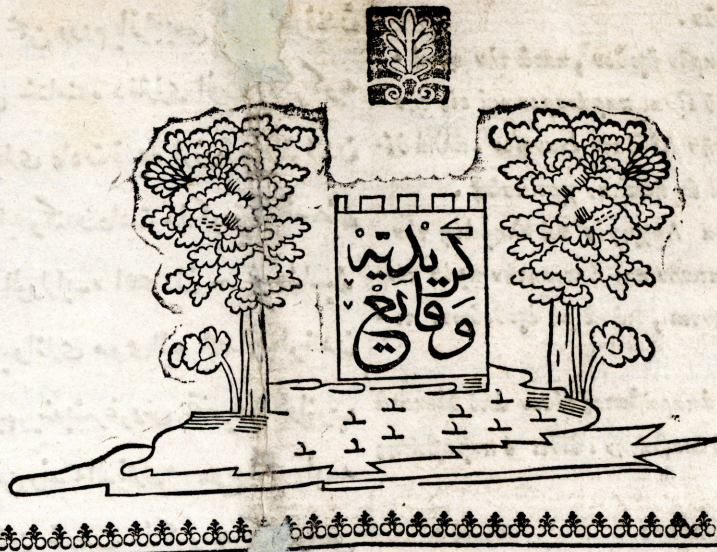 وقايع
كريديه